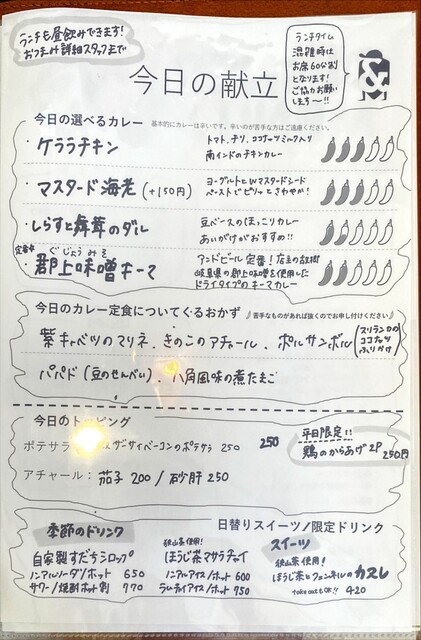 ランチも昼飲みできます!
おつまみ詳細スタッフまで
今日の献立
ランチタイム
混雑時は
お席60分制
となります!
ご協力お願い
します〜!!
&
今日の選べるカレー 基本的にカレーは辛いです。辛いのが苦手な方はご遠慮ください。
・ケララチキン
トマト、チリ、ココナッツミルク入り
南インドのチキンカレー
・マスタード海老(+150円)
ヨーグルトにWマスタードシード
ペーストでピリッとさわやか!
・しらすと舞茸のダル
豆ベースのほっこりカレー
あいがけがおすすめ!!
定番
ぐじょうみそ
・郡上味噌キーマ
アンドビール定番!店主の故郷
岐阜県の郡上味噌を使用した
ドライタイプのキーマカレー
今日のカレー定食についてくるおかず 苦手なものがあれば抜くのでお申し付けください
紫キャベツのマリネ、きのこのアチャール、ポルサンボル(スリランカの
ココナッツ
ふりかけ)
パパド(豆のせんべい)、八角風味の煮たまご
今日のトッピング
ポテサラ ザーサイベーコンのポテサラ 250
250
平日限定!!
鶏のからあげ2P 250円
アチャール: 茄子 200 / 砂肝 250
季節のドリンク
日替りスイーツ/限定ドリンク
自家製すだちシロップ
ノンアルソーダ/ホット 650
サワー/焼酎ホット割 770
狭山茶使用!
ほうじ茶マサラチャイ
ノンアルアイス/ホット 600
ラムチャイアイス/ホット 750
スイーツ
狭山茶使用!
ほうじ茶とフェンネルのカヌレ
take outもOK!! 420